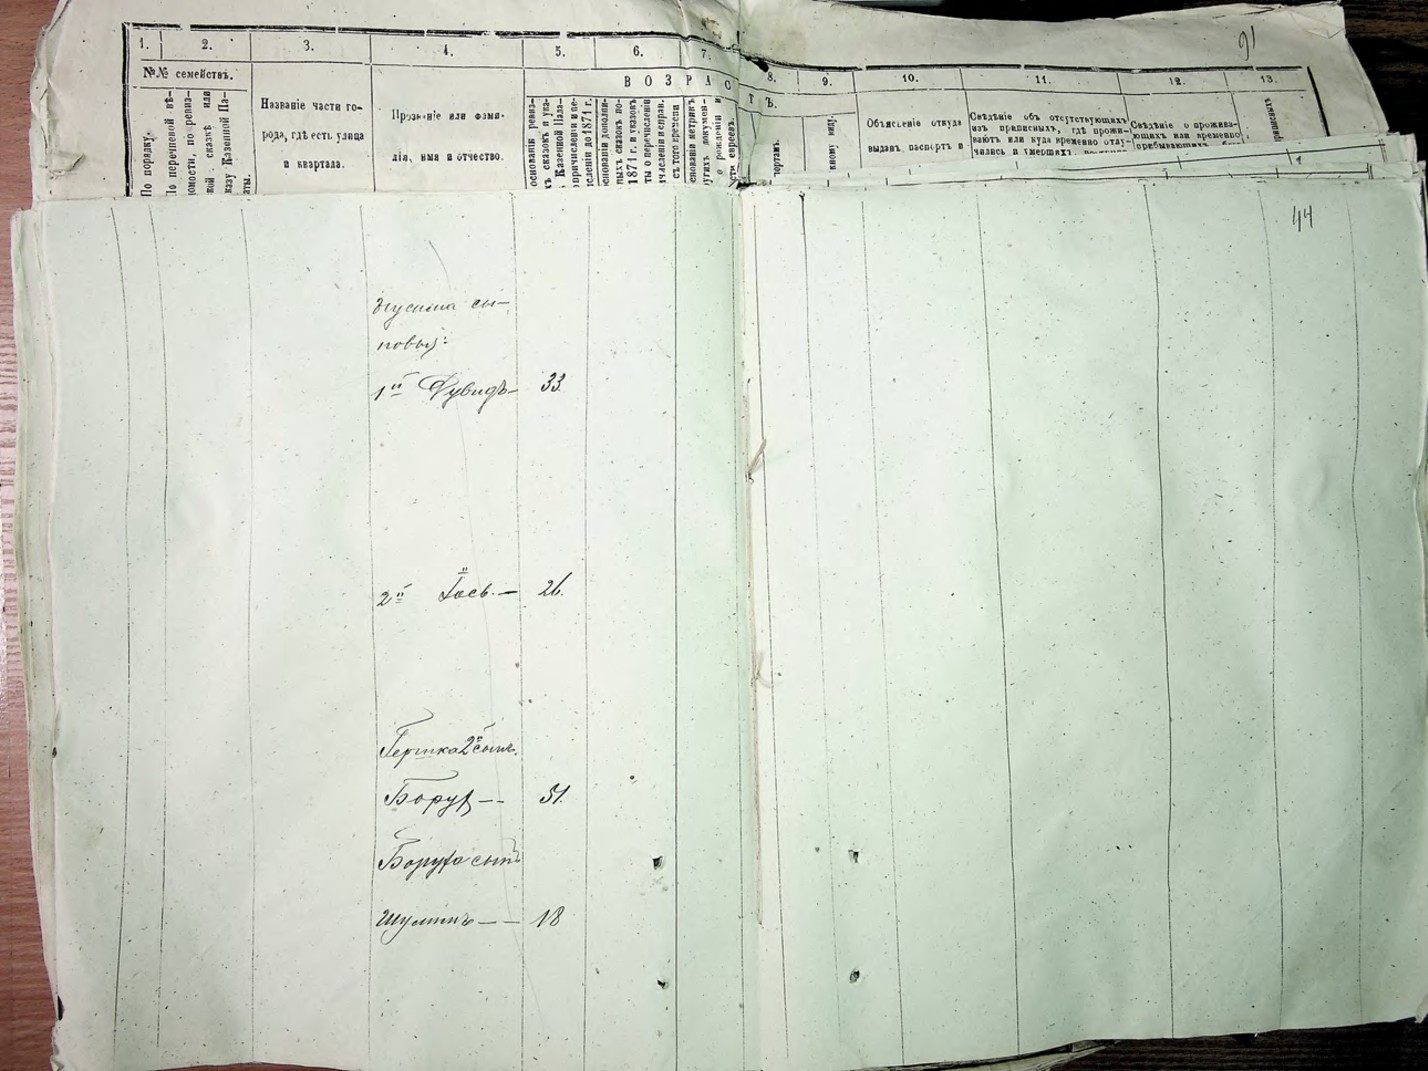 1. 2. 3. 4. 5. 6. 7. 8. 9. 10. 11. 12. 13.
91
№№ семействъ.
По порядку.
По перечневой вѣ-
домости, по ревиз-
ской сказкѣ или
указу Казенной Па-
латы.
Названіе части го-
рода, гдѣ есть улица
и квартала.
Прозваніе или фами-
лія, имя и отчество.
ВОЗРАСТЪ.
основаніи ревиз-
съ сказокъ и ука-
Казенной Пала-
причисленіи и пе-
сленіи до 1871 г.
основаніи дополни-
ныхъ сказокъ по-
1871 г. и указовъ
ты о перечисленіи
съ того времени
основаніи метрик.
другихъ докумен-
о рожденіи и
евреевъ.
Объясненіе откуда
выданъ паспортъ и
Свѣдѣніе объ отсутствующихъ
изъ приписныхъ, гдѣ прожи-
ваютъ или куда временно отлу-
чались и умершихъ.
Свѣдѣніе о прожива-
ющихъ или временно
приписныхъ
44
сы-
новья:
1й Дувидъ- 33.
2й Іось.- 26.
Гершка 2й сынъ.
Борух-- 51.
Боруха сынъ
Шулимъ-- 18